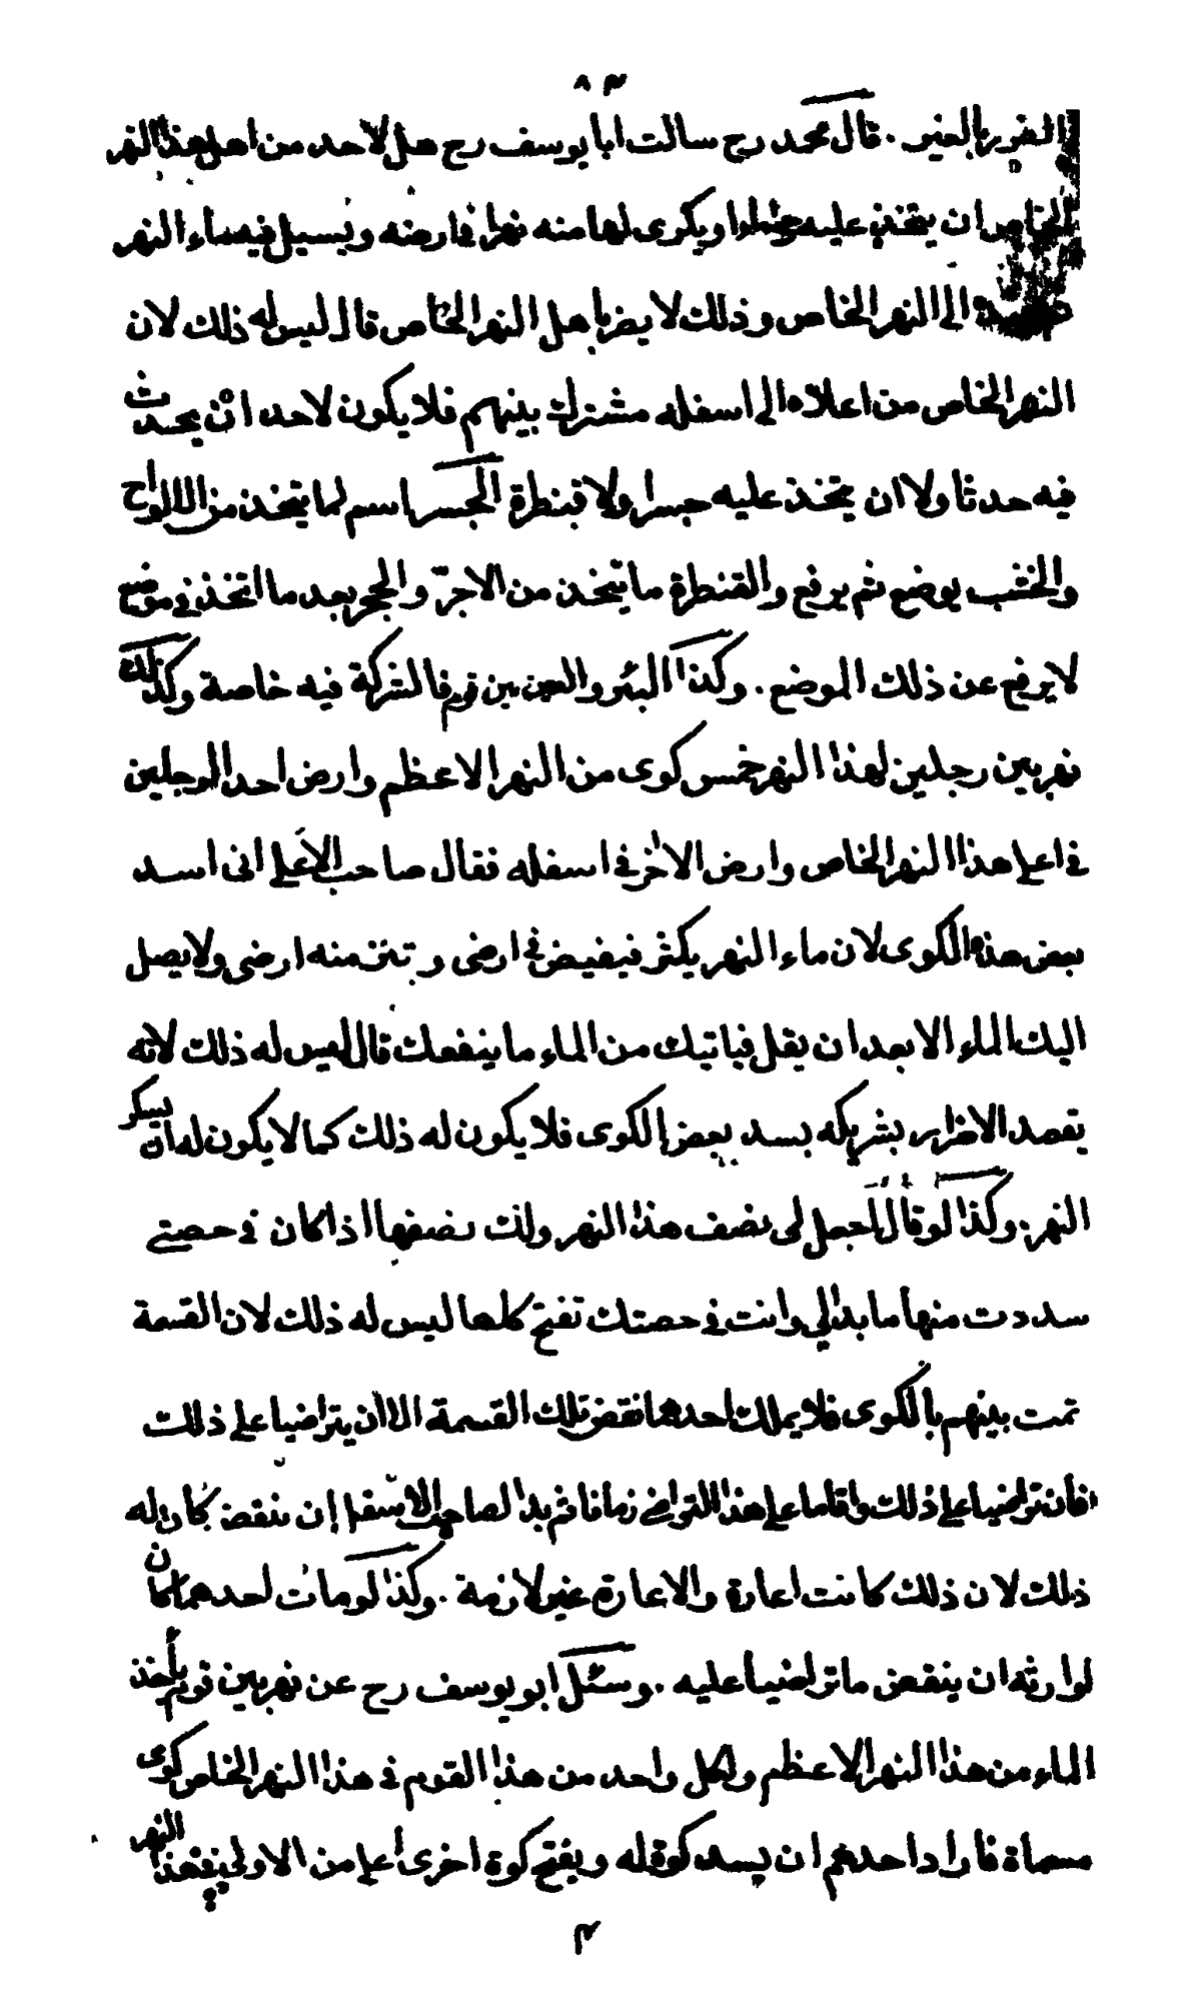 ٨٣
الضرر بالغير . قال محمد رح سالت ابا يوسف رح هل لاحد من اهل هذا النهر
الخاص ان يتخذ عليه ويكرى لها منه نهرا فى ارضه ويسيل فيه ماء النهر
الى النهر الخاص وذلك لا يضر باهل النهر الخاص قال ليس له ذلك لان
النهر الخاص من اعلاه الى اسفله مشترك بينهم فلا يكون لاحد ان يحدث
فيه حدثا ولا ان يتخذ عليه جسرا ولا قنطرة الجسر اسم لما يتخذ من الالواح
والخشب يوضع ثم يرفع والقنطرة ما يتخذ من الاجرّ والحجر بعد ما اتخذ فى موضع
لا يرفع عن ذلك الموضع . وكذا البئر والعين بين قوم فالشركة فيه خاصة وكذلك
نهر بين رجلين لهذا النهر خمس كوى من النهر الاعظم وارض احد الرجلين
فى اعلى هذا النهر الخاص وارض الاخر فى اسفله فقال صاحب الاعلى انى اسد
بعض هذه الكوى لان ماء النهر يكثر فيفيض فى ارضى وتنز منه ارضى ولا يصل
اليك الماء الا بعد ان يقل فياتيك من الماء ما ينفعك قال ليس له ذلك لانه
يقصد الاضرار بشريكه بسد بعض الكوى فلا يكون له ذلك كما لا يكون له ان يسكر
النهر . وكذا لو قال اجعل لى نصف هذا النهر ولك نصفها اذا كان فى حصتى
سددت منها ما بدا لى وانت فى حصتك تفتح كلها ليس له ذلك لان القسمة
تمت بينهم بالكوى فلا يملك احدهما نقض تلك القسمة الا ان يتراضيا على ذلك
فان تراضيا على ذلك واقاما على هذا التراضى زمانا ثم بدا لصاحب الاسفل ان ينقض كان له
ذلك لان ذلك كانت اعارة والاعارة غير لازمة . وكذا لو مات احدهما كان
لوارثه ان ينقض ما تراضيا عليه . وسئل ابو يوسف رح عن نهر بين قوم يأخذ
الماء من هذا النهر الاعظم ولكل واحد من هذا القوم فى هذا النهر الخاص كوى
مسماة فاراد احدهم ان يسد كوة له ويفتح كوة اخرى أعلى من الاولى فى هذا النهر